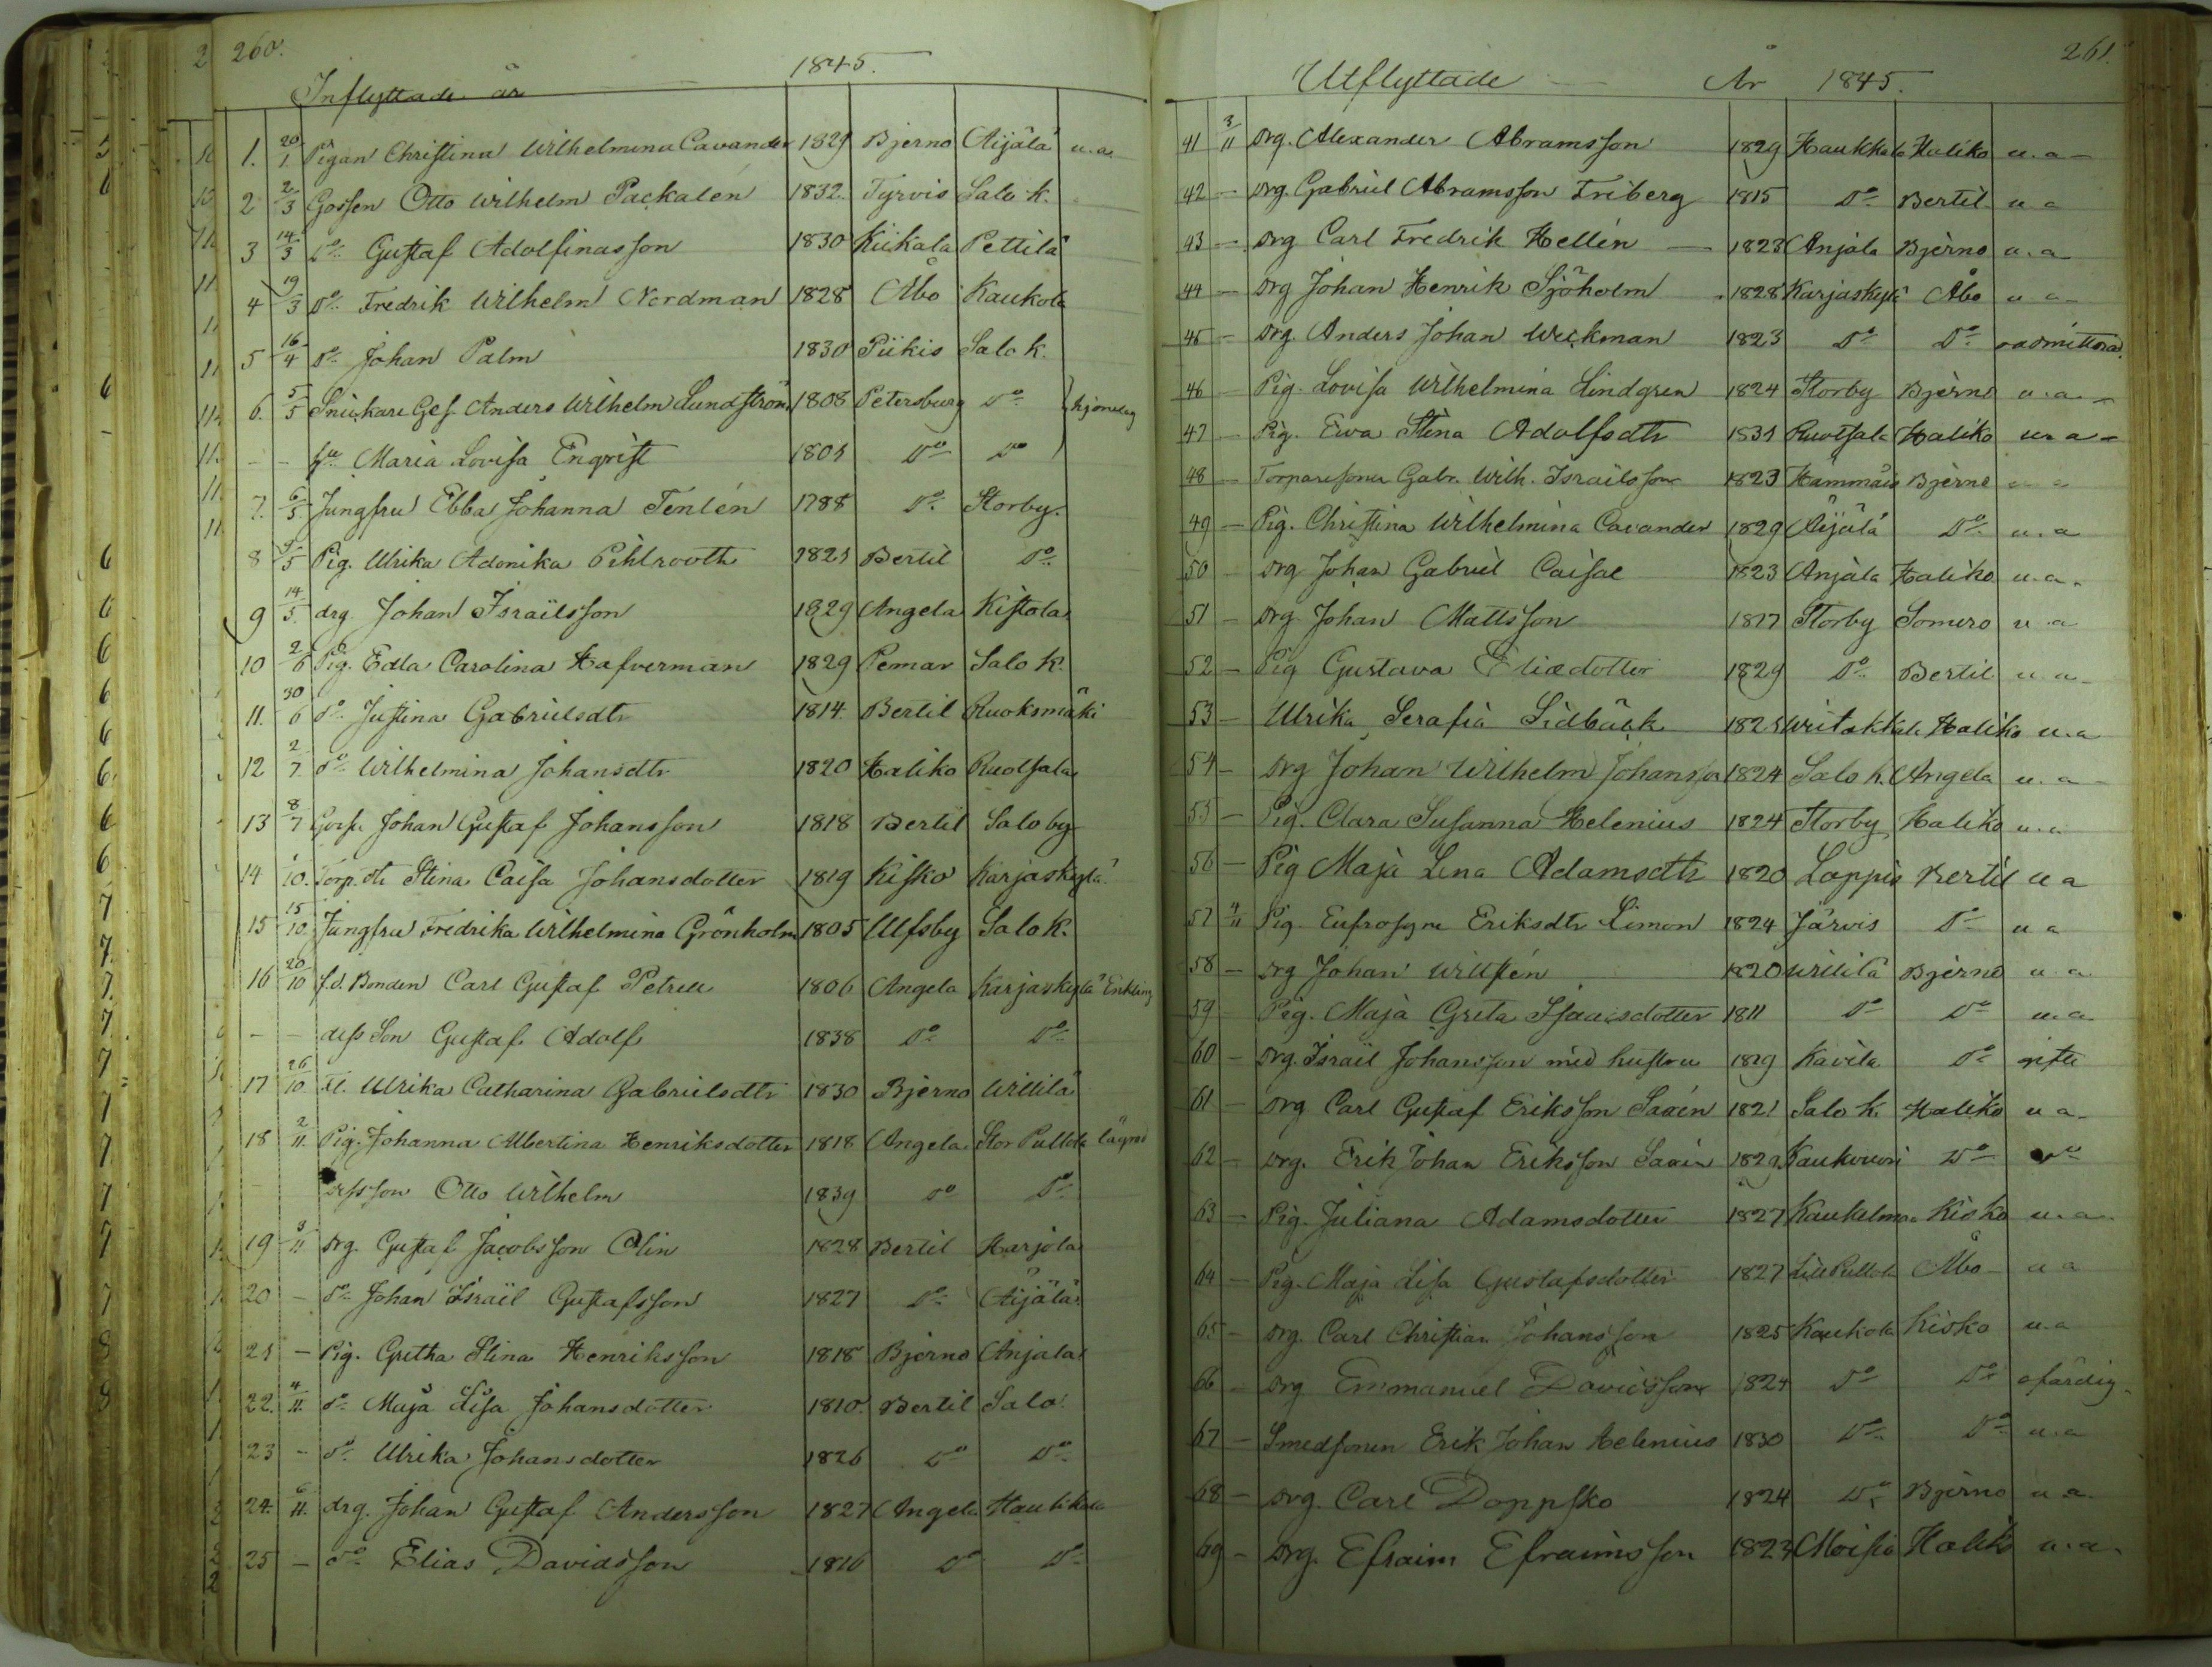 260.
Inflyttade år 1845.
1. 20/1 Pigan Christina Wilhelmina Cavander 1829 Bjerno Aijälä u.a.
2 2/3 Gossen Otto Wilhelm Packalen 1832. Tyrvis Salo k.
3 14/3 Do Gustaf Adolfinasson 1830 Kiikala Pettilä
4 19/3 Do Fredrik Wilhelm Nordman 1828 Åbo Kaukola
5 16/4 Do Johan Palm 1830 Piikis Salo k.
6. 5/5 Snickare Ges. Anders Wilhelm Lundström 1808 Petersburg Do
- - Maria Lovisa Enqvist 1801 Do Do
7. 6/5 Jungfru Ebba Johanna Tenlén 1788 Do Storby.
8 /5 Pig. Ulrika Adonika Pihlrooth 1821 Bertil Do
9 14/5. drg Johan Israilsson 1829 Angela Kistola
10 2/6 Pig. Edla Carolina Hafverman 1829 Pemar Salo k.
11. 30/6 Do Justina Gabrielsdtr 1814. Bertil Ruoksmäki
12 2/7. Do Wilhelmina Johansdtr 1820 Haliko Ruotsala
13 8/7 Johan Gustaf Johansson 1818 Bertil Salo by
14 1/10. Torp. dtr Stina Caisa Johansdotter 1819 Kisko Karjaskylä
15 15/10. Jungfru Fredrika Wilhelmina Grönholm 1805 Ulfsby Salo k.
16 20/10 f.d. Bonden Carl Gustaf Petrell 1806 Angela Karjaskylä Enkling
- - dess Son Gustaf Adolf 1838 Do Do
17 26/10. Fl. Ulrika Catharina Gabrielsdtr 1830 Bjerno Willilä
18 2/11. Pig. Johanna Albertina Henriksdotter 1818 Angela Stor Pullola lägrad
dess son Otto Wilhelm 1839 Do Do
19 3/11 drg. Gustaf Jacobsson Olin 1828 Bertil Harjola
20 - Do Johan Israil Gustafsson 1827 Do Aijälä
21 - Pig. Gretha Stina Henriksson 1818 Bjerno Anjala
22. 4/11. Do Maja Lisa Johansdotter 1810. Bertil Salo
23 - Do Ulrika Johansdotter 1826 Do Do
24. 6/11. drg. Johan Gustaf Andersson 1827 Angela Haukkala
25 - Do Elias Davidsson 1816 Do Do
261.
Utflyttade År 1845.
41 3/11 drg. Alexander Abramsson 1829 Haukkala Haliko u.a
42 - drg. Gabriel Abramsson Friberg 1815 Do Bertil u.a
43 - drg Carl Fredrik Hellén 1823 Anjala Bjerno u.a
44 - drg Johan Henrik Sjöholm 1828 Karjaskylä Åbo u.a
45 - drg. Anders Johan Wickman 1823 Do Do oadmitterad.
46 - Pig. Lovisa Wilhelmina Lindgren 1824 Storby Bjerno u.a.
47 - Pig. Ewa Stina Adolfsdtr 1831 Ruotsala Haliko u.a
48 - Torparesonen Gabr. Wilh. Israilsson 1823 Hämmäis Bjerno u.a
49 - Pig. Christina Wilhelmina Cavander 1829 Aijälä Do u.a
50 - drg Johan Gabriel Caisal 1823 Anjala Haliko u.a.
51 - drg Johan Mattsson 1817 Storby Somero u.a
52 - Pig Gustava Eliædotter 1829 Do Bertil u.a
53 - Ulrika Serafia Lidbäck 1821 Writakkala Haliko u.a
54 - drg Johan Wilhelm Johansson 1824 Salo k. Angela u.a
55 - Pig. Clara Susanna Helenius 1824 Storby Haliko u.a
56 - Pig Maja Lena Adamsdtr 1820 Loppis Bertil u a
57 4/11 Pig Eufrosyne Eriksdtr Limon 1824 Järvis Do u a
58 - drg Johan Willstén 1820 Willilä Bjerno u.a
59 - Pig. Maja Greta Isaacsdotter 1811 Do Do u.a
60 - drg. Israil Johansson med hustru 1819 Kavila Do gifta
61 - drg Carl Gustaf Eriksson Saxén 1821 Salo k. Haliko u a
62 - drg. Erik Johan Eriksson Saxén 1829 Kaukovuori Do Do
63 - Pig. Juliana Adamsdotter 1827 Kaukelmaa Kisko u.a
64 - Pig. Maja Lisa Gustafsdotter 1827 Lill Pullola Åbo u a
65 - drg. Carl Christian Johansson 1825 Kaukola Kisko u.a
66 - drg Emmanuel Davidsson 1824 Do Do ofärdig
67 - Smedsonen Erik Johan Helenius 1830 Do Do u.a
68 - drg. Carl Doppsko 1824 Do Bjerno u.a.
69 - drg. Efraim Efraimsson 1823 Moisio Haliko u.a.